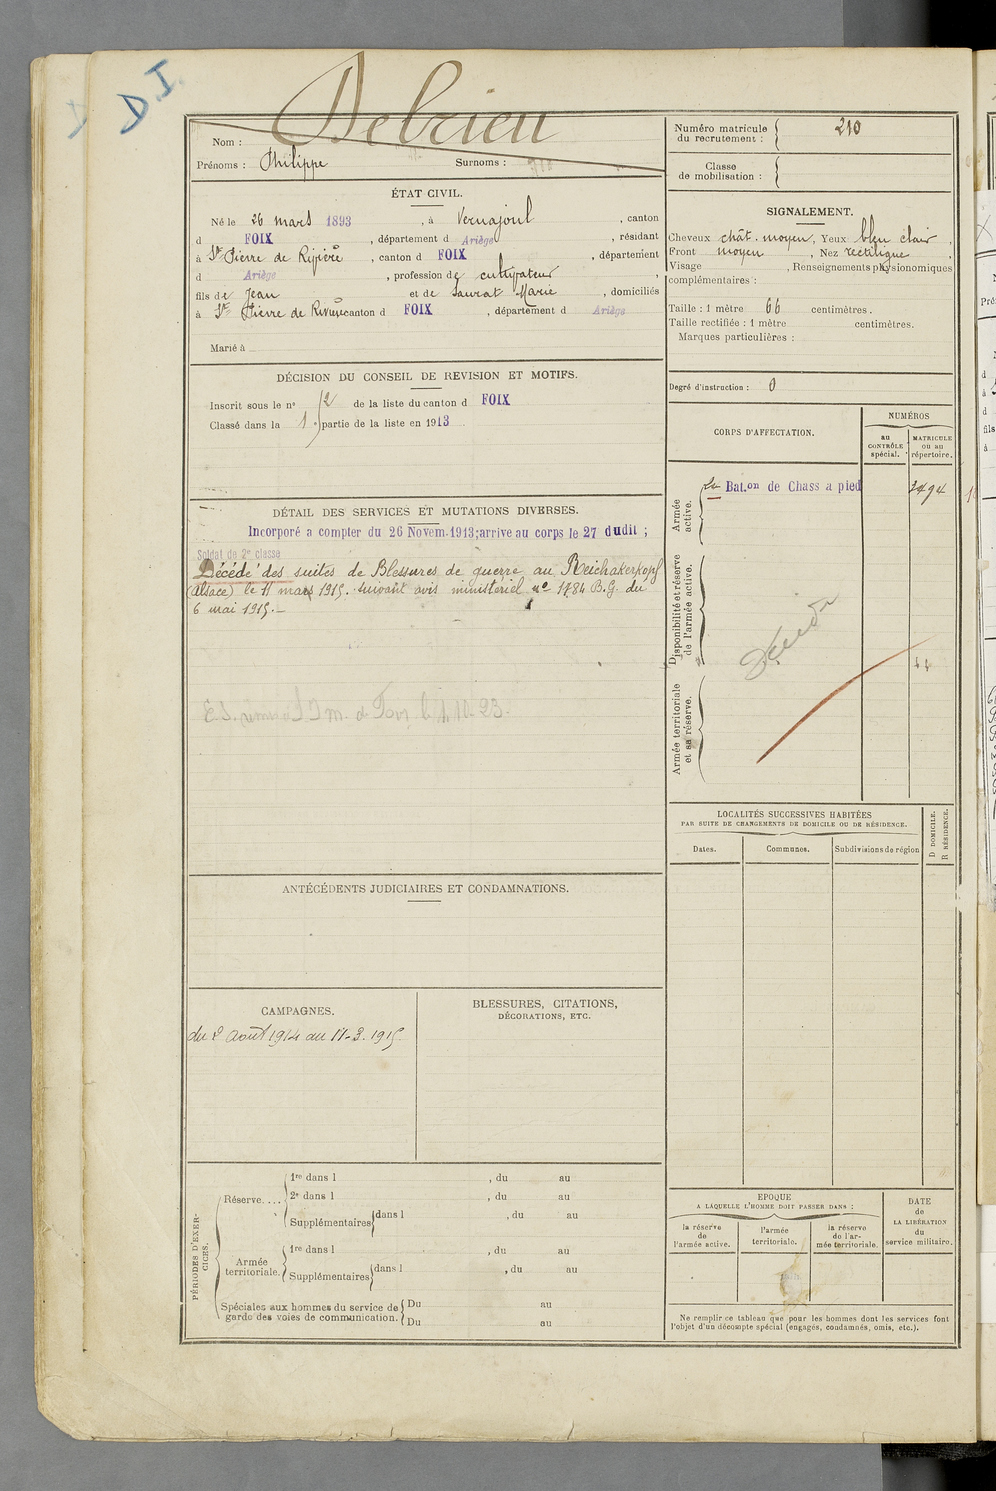 D.I.
Delrieu
Nom :
Prénoms : Philippe Surnoms :
Numéro matricule
du recrutement : 210
Classe
de mobilisation :
ÉTAT CIVIL.
Né le 26 mars 1893, à Vernajoul, canton
d FOIX, département d Ariège, résidant
à St Pierre de Rivière, canton d FOIX, département
d Ariège, profession de cultivateur,
fils de Jean et de Saurat Marie, domiciliés
à St Pierre de Rivière canton d FOIX, département d Ariège
Marié à
SIGNALEMENT.
Cheveux chât. moyen, Yeux bleu clair,
Front moyen, Nez rectiligne,
Visage , Renseignements physionomiques
complémentaires :
Taille : 1 mètre 66 centimètres.
Taille rectifiée : 1 mètre centimètres.
Marques particulières :
Degré d'instruction : 0
DÉCISION DU CONSEIL DE REVISION ET MOTIFS.
Inscrit sous le no 12 de la liste du canton d FOIX
Classé dans la 1 partie de la liste en 1913
CORPS D'AFFECTATION.
NUMÉROS
au
CONTRÔLE
spécial.
MATRICULE
ou au
répertoire.
Armée
active.
Bat.on de Chass a pied
3494
Disponibilité et réserve
de l'armée active.
Armée territoriale
et sa réserve.
DÉTAIL DES SERVICES ET MUTATIONS DIVERSES.
Incorporé a compter du 26 Novem. 1913; arrive au corps le 27 dudit ;
Soldat de 2e classe
Décédé des suites de Blessures de guerre au Reichakerkopf
(Alsace) le 11 mars 1915. suivant avis ministériel no 1784 B.G. du
6 mai 1915.—
LOCALITÉS SUCCESSIVES HABITÉES
PAR SUITE DE CHANGEMENTS DE DOMICILE OU DE RÉSIDENCE.
Dates.
Communes.
Subdivisions de région
D DOMICILE.
R RÉSIDENCE.
ANTÉCÉDENTS JUDICIAIRES ET CONDAMNATIONS.
CAMPAGNES.
du 2 Août 1914 au 11-3-1915.
BLESSURES, CITATIONS,
DÉCORATIONS, ETC.
PÉRIODES D'EXER-
CICES.
Réserve....
1re dans l , du au
2e dans l , du au
Supplémentaires dans l , du au
Armée
territoriale.
1re dans l , du au
Supplémentaires dans l , du au
Spéciales aux hommes du service de
garde des voies de communication.
Du au
Du au
EPOQUE
A LAQUELLE L'HOMME DOIT PASSER DANS :
la réserve
de
l'armée active.
l'armée
territoriale.
la réserve
de l'ar-
mée territoriale.
DATE
de
LA LIBÉRATION
du
service militaire.
Ne remplir ce tableau que pour les hommes dont les services font
l'objet d'un décompte spécial (engagés, condamnés, omis, etc.).